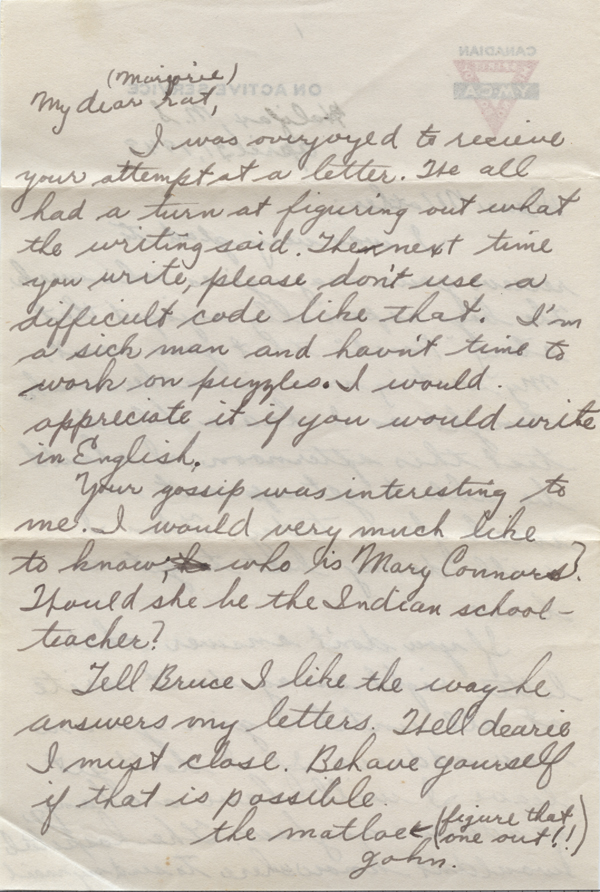 CANADIAN
Y.M.C.A.
ON ACTIVE SERVICE
(Marjorie)
My dear rat,
I was overjoyed to recieve
your attempt at a letter. We all
had a turn at figuring out what
the writing said. The next time
you write, please don't use a
difficult code like that. I'm
a sick man and havn't time to
work on puzzles. I would
appreciate it if you would write
in English.
Your gossip was interesting to
me. I would very much like
to know, who is Mary Connors?
Would she be the Indian school-
teacher?
Tell Bruce I like the way he
answers my letters. Well dearie
I must close. Behave yourself
if that is possible.
the (figure that
one out!!)
John.